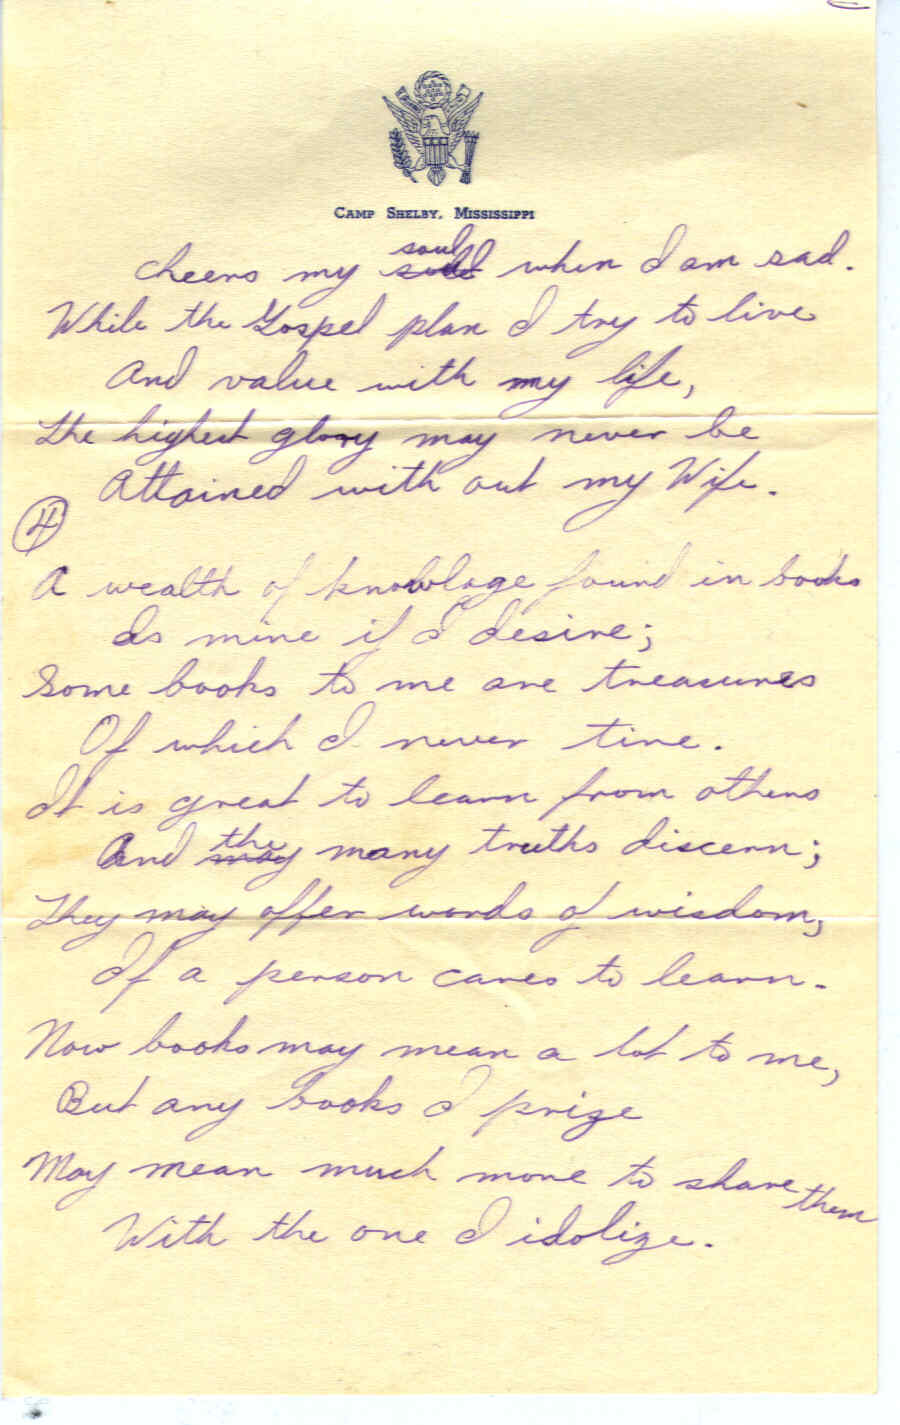 CAMP SHELBY, MISSISSIPPI
cheers my soul when I am sad.
While the Gospel plan I try to live
And value with my life,
The highest glory may never be
Attained with out my Wife.
4
A wealth of knowlage found in books
Is mine if I desire;
Some books to me are treasures
Of which I never tire.
It is great to learn from others
And the many truths discern;
They may offer words of wisdom,
If a person cares to learn.
Now books may mean a lot to me,
But any books I prize
May mean much more to share them
With the one I idolize.